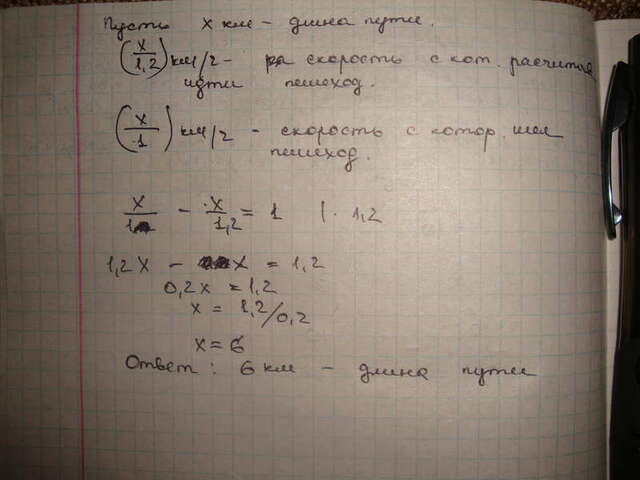 Пусть x км – длина пути.
(x/1,2) км/г – скорость с кот. расчитал
идти пешеход.
(x/1) км/г – скорость с котор. шел
пешеход.
x/1 – x/1,2 = 1 | · 1,2
1,2x – x = 1,2
0,2x = 1,2
x = 1,2/0,2
x = 6
Ответ: 6 км – длина пути